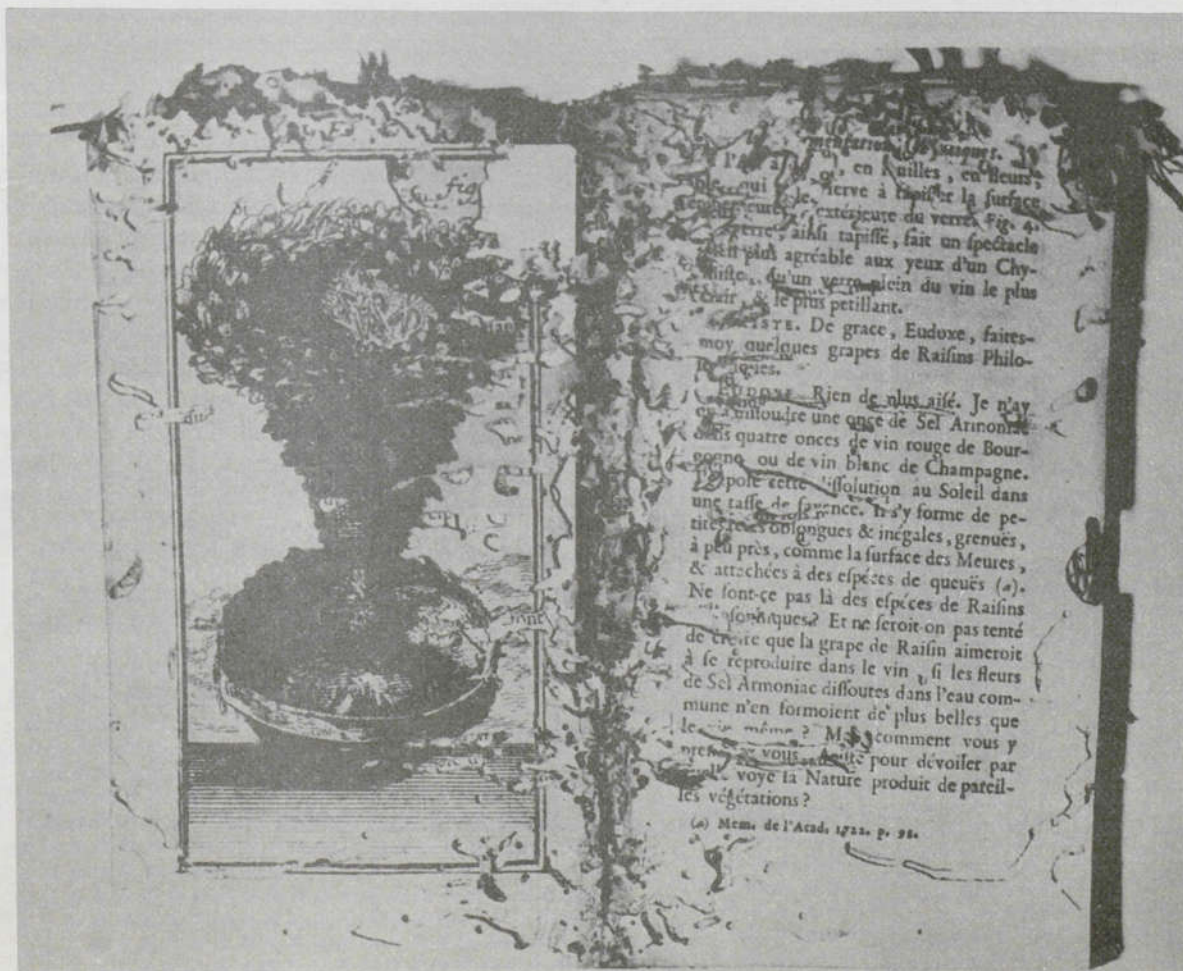 fig
dui
sont
mentation
en fleurs,
qui serve à tapisser la surface
extérieure du verre. Fig. 4.
verre, ainsi tapissé, fait un spectacle
plus agréable aux yeux d'un Chy-
miste, qu'un verre plein du vin le plus
clair, & le plus petillant.
De grace, Eudoxe, faites-
moy quelques grapes de Raisins Philo-
EUDOXE. Rien de plus aisé. Je n'ay
qu'à dissoudre une once de Sel Armoniac
dans quatre onces de vin rouge de Bour-
gogne, ou de vin blanc de Champagne.
J'expose cette dissolution au Soleil dans
une tasse de fayence. Il s'y forme de pe-
tites oblongues & inégales, grenuës,
à peu près, comme la surface des Meures,
& attachées à des espéces de queuës (a).
Ne sont-çe pas là des espéces de Raisins
Et ne seroit-on pas tenté
de croire que la grape de Raisin aimeroit
à se reproduire dans le vin, si les fleurs
de Sel Armoniac dissoutes dans l'eau com-
mune n'en formoient de plus belles que
le vin même? Mais comment vous y
vous, pour dévoiler par
voye la Nature produit de pareil-
les végétations?
(a) Mem. de l'Acad. 1722. p. 98.